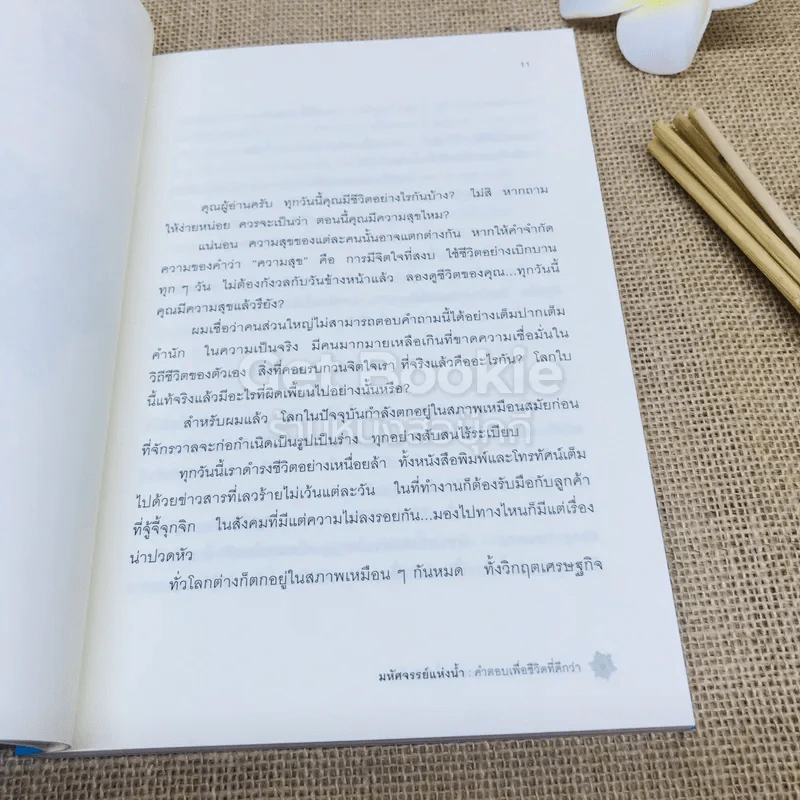 11
คุณผู้อ่านครับ ทุกวันนี้คุณมีชีวิตอย่างไรกันบ้าง? ไม่สิ หากถาม
ให้ง่ายหน่อย ควรจะเป็นว่า ตอนนี้คุณมีความสุขไหม?
แน่นอน ความสุขของแต่ละคนนั้นอาจแตกต่างกัน หากให้คำจำกัด
ความของคำว่า "ความสุข" คือ การมีจิตใจที่สงบ ใช้ชีวิตอย่างเบิกบาน
ทุก ๆ วัน ไม่ต้องกังวลกับวันข้างหน้าแล้ว ลองดูชีวิตของคุณ...ทุกวันนี้
คุณมีความสุขแล้วรึยัง?
ผมเชื่อว่าคนส่วนใหญ่ไม่สามารถตอบคำถามนี้ได้อย่างเต็มปากเต็ม
คำนัก ในความเป็นจริง มีคนมากมายเหลือเกินที่ขาดความเชื่อมั่นใน
วิถีชีวิตของตัวเอง สิ่งที่คอยรบกวนจิตใจเรา ที่จริงแล้วคืออะไรกัน? โลกใบ
นี้แท้จริงแล้วมีอะไรที่ผิดเพี้ยนไปอย่างนั้นหรือ?
Get Bookie
ร้านหนังสือเก็ท
สำหรับผมแล้ว โลกในปัจจุบันกำลังตกอยู่ในสภาพเหมือนสมัยก่อน
ที่จักรวาลจะก่อกำเนิดเป็นรูปเป็นร่าง ทุกอย่างสับสนไร้ระเบียบ
ทุกวันนี้เราดำรงชีวิตอย่างเหนื่อยล้า ทั้งหนังสือพิมพ์และโทรทัศน์เต็ม
ไปด้วยข่าวสารที่เลวร้ายไม่เว้นแต่ละวัน ในที่ทำงานก็ต้องรับมือกับลูกค้า
ที่จู้จี้จุกจิก ในสังคมที่มีแต่ความไม่ลงรอยกัน...มองไปทางไหนก็มีแต่เรื่อง
น่าปวดหัว
ทั่วโลกต่างก็ตกอยู่ในสภาพเหมือน ๆ กันหมด ทั้งวิกฤตเศรษฐกิจ
มหัศจรรย์แห่งน้ำ : คำตอบเพื่อชีวิตที่ดีกว่า